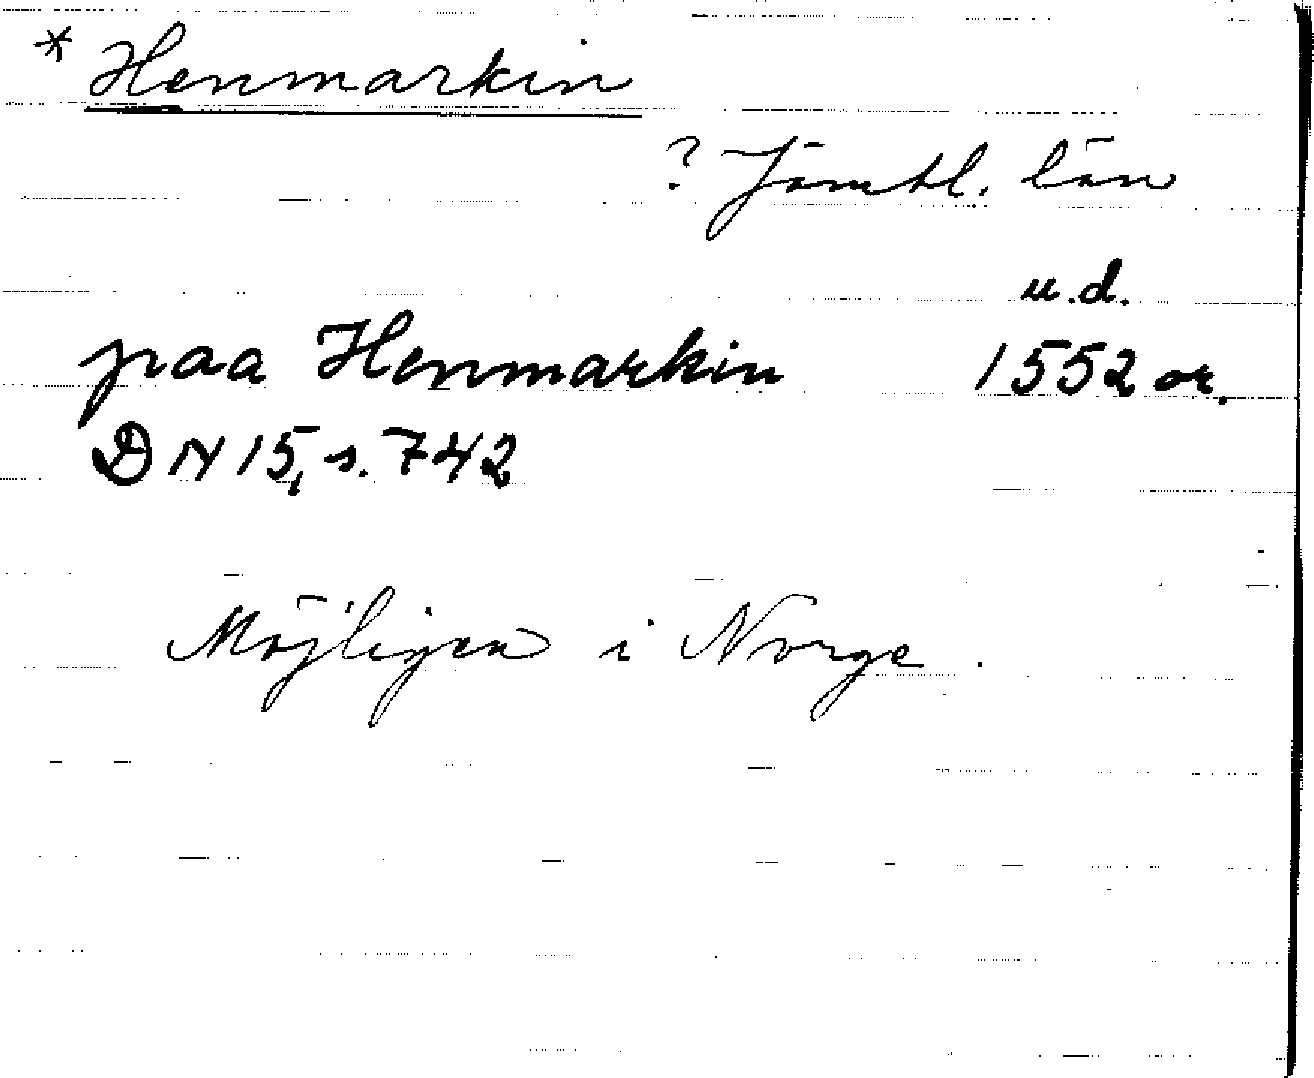 * Henmarkin
? Jämtl. län
u.d.
paa Henmarkin 1552 or.
DN 15, s. 742
Möjligen i Norge.